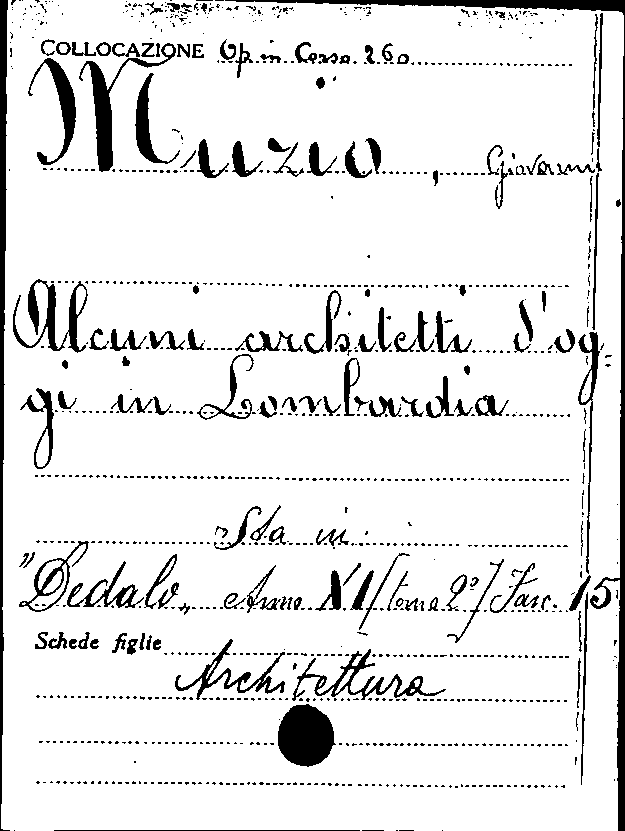 COLLOCAZIONE Op in Corso. 260
Muzio, Giovanni
Alcuni architetti d'og-
gi in Lombardia
Sta in:
"Dedalo„ Anno XI [tomo 2º] Fasc. 15
Schede figlie
Architettura